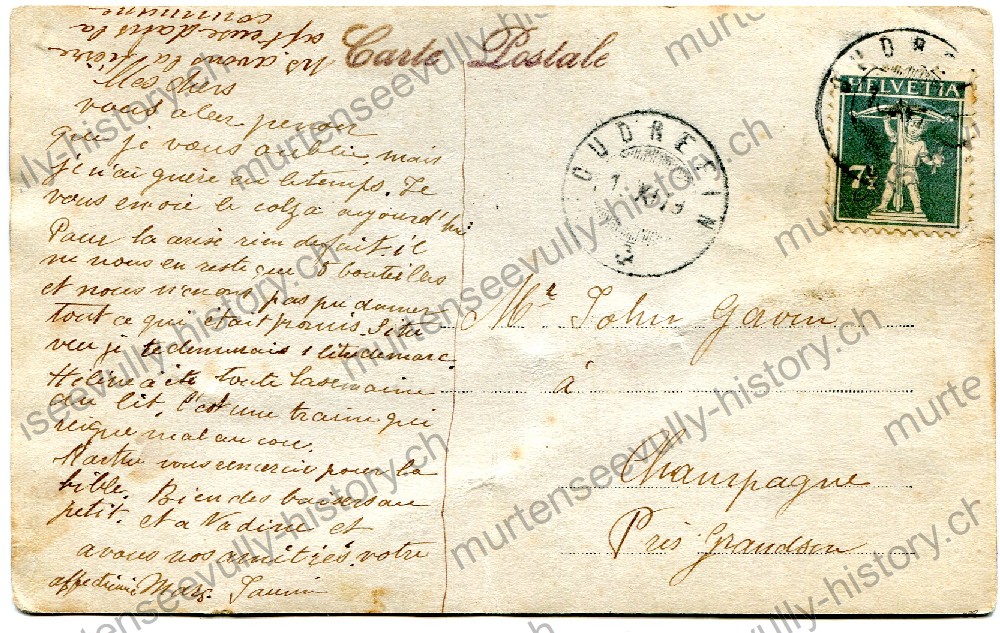 Carte Postale
Mes chers
vous aler penser
que je vous oublie, mais
je n'ai guère eu le temps. Je
vous envoie le colza aujourd'hui
Pour la cerise rien de fait. il
ne nous en reste que 5 bouteilles
et nous n'avons pas pu donner
tout ce qui était promis. Si tu
veu je 1 litre de marc
Hélène a été toute la semaine
au lit. c'est une qui
mal au cou.
Martha vous remercie pour la
bible. Bien des baisers au
petit. et a Nadine et
a vous nos amitiés. votre
COUDREFIN
HELVETIA
7½
CUDREFIN
Mr John Gavin
à
Champagne
Près Grandson
murtenseevully-history.ch